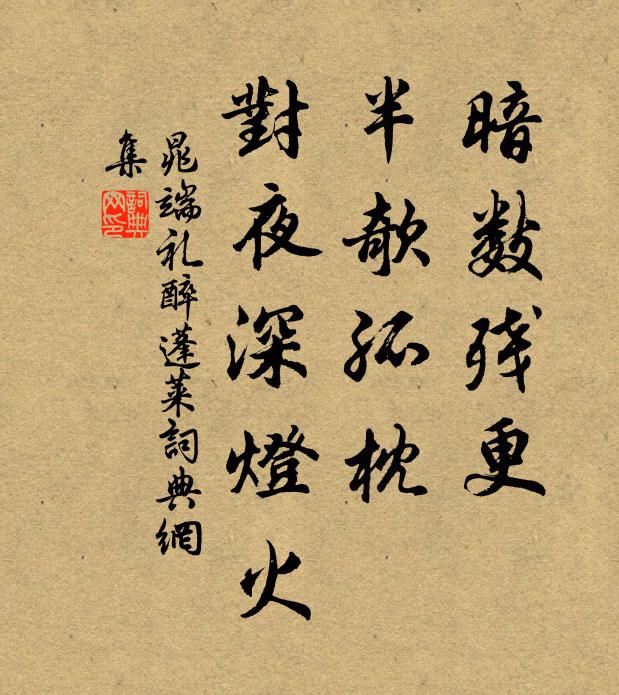 暗数残更
半欹孤枕
對夜深燈火
晁端礼醉蓬莱詞典網
集
詞典
网印